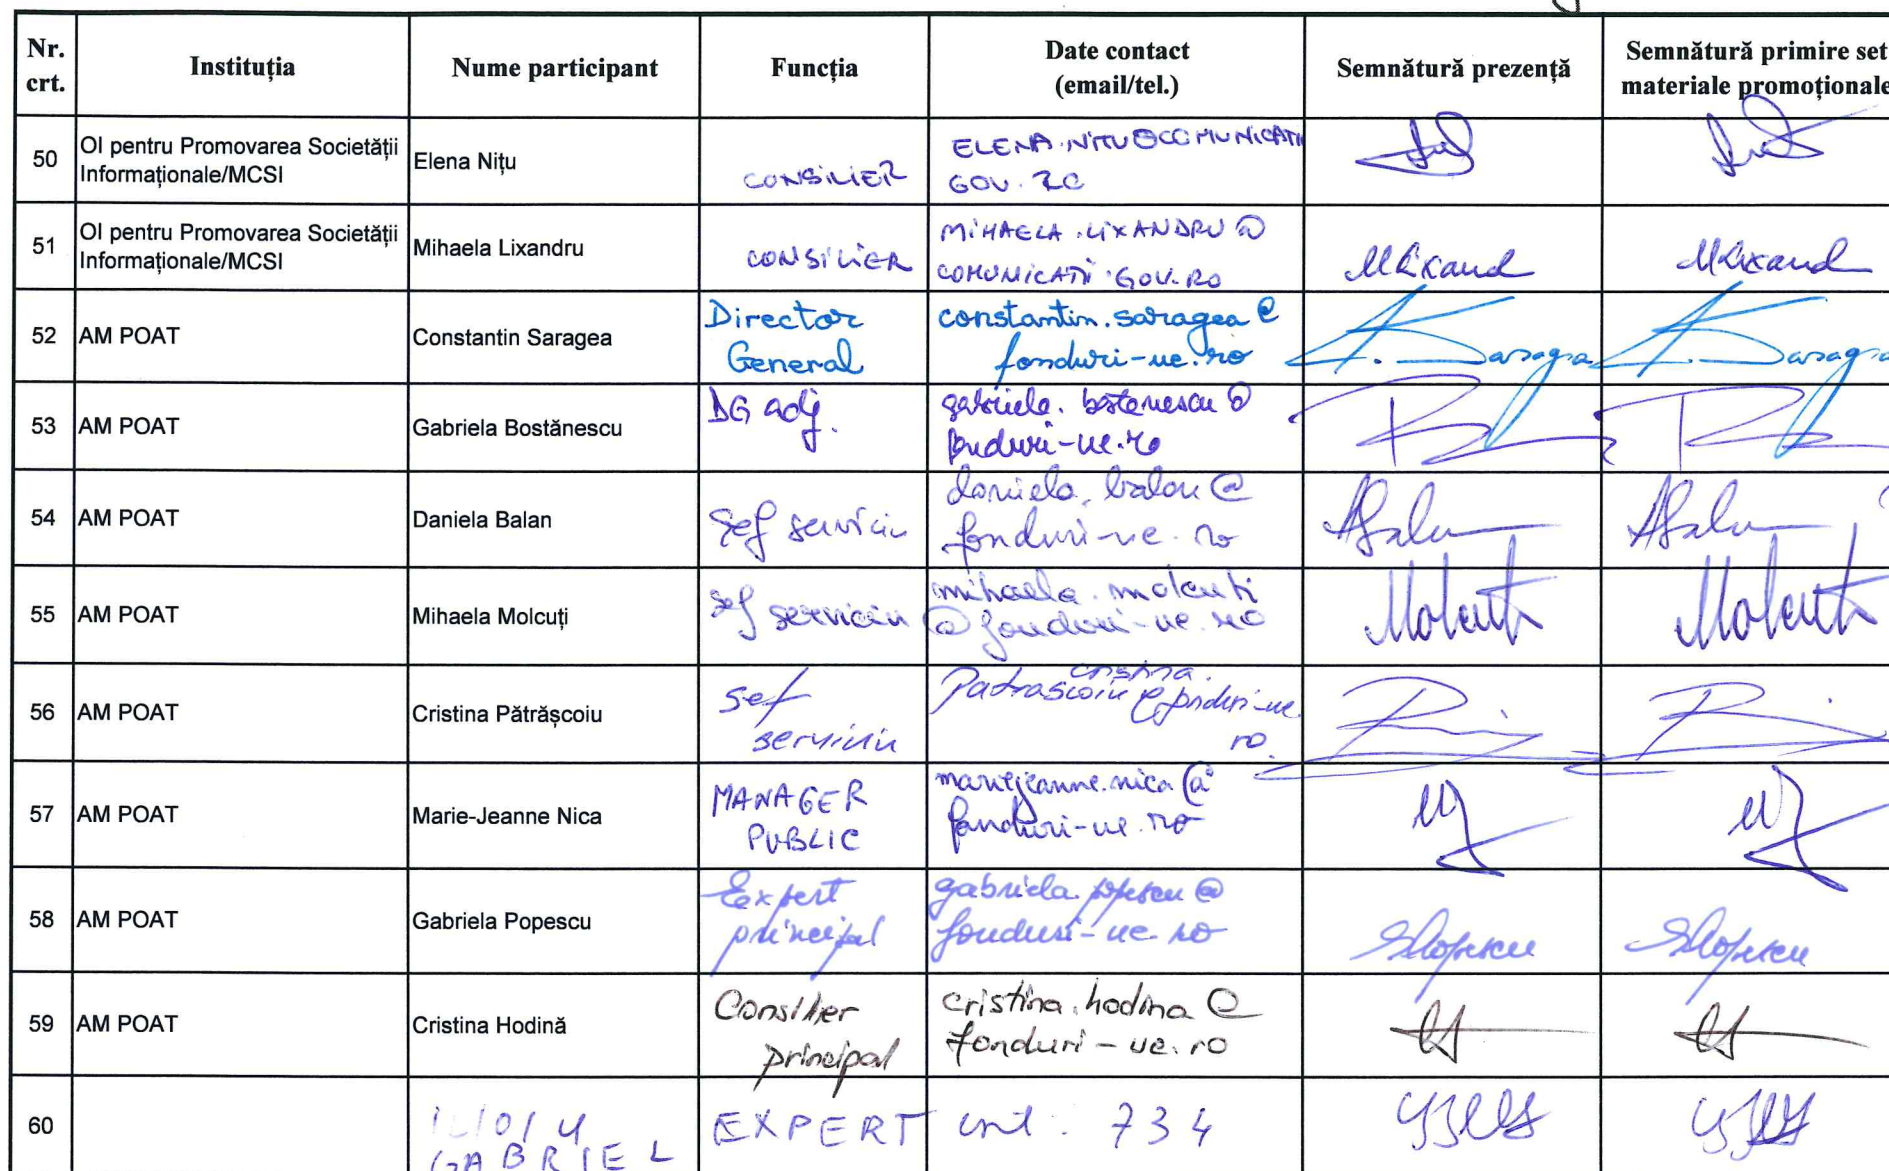 Nr. crt.
Instituția
Nume participant
Funcția
Date contact (email/tel.)
Semnătură prezență
Semnătură primire set materiale promoționale
50
OI pentru Promovarea Societății
Informaționale/MCSI
Elena Nițu
CONSILIER
ELENA.NITU@COMUNICATI
GOV.RO
51
OI pentru Promovarea Societății
Informaționale/MCSI
Mihaela Lixandru
CONSILIER
MIHAELA.LIXANDRU@
COMUNICATII.GOV.RO
MLixand
MLixand
52
AM POAT
Constantin Saragea
Director
General
constantin.saragea@
fonduri-ue.ro
Saragea
Saragea
53
AM POAT
Gabriela Bostănescu
DG adj.
gabriela.bostanescu@
fonduri-ue.ro
54
AM POAT
Daniela Balan
Șef serviciu
daniela.balan@
fonduri-ue.ro
55
AM POAT
Mihaela Molcuți
șef serviciu
mihaela.molcuti
@fonduri-ue.ro
Molcuti
Molcuti
56
AM POAT
Cristina Pătrășcoiu
Sef
serviciu
cristina.
Patrascoiu@fonduri-ue.
ro
57
AM POAT
Marie-Jeanne Nica
MANAGER
PUBLIC
mariejeanne.nica@
fonduri-ue.ro
58
AM POAT
Gabriela Popescu
Expert
principal
gabriela.popescu@
fonduri-ue.ro
GPopescu
GPopescu
59
AM POAT
Cristina Hodină
Consilier
principal
cristina.hodina@
fonduri-ue.ro
60
GABRIEL
EXPERT
int: 734